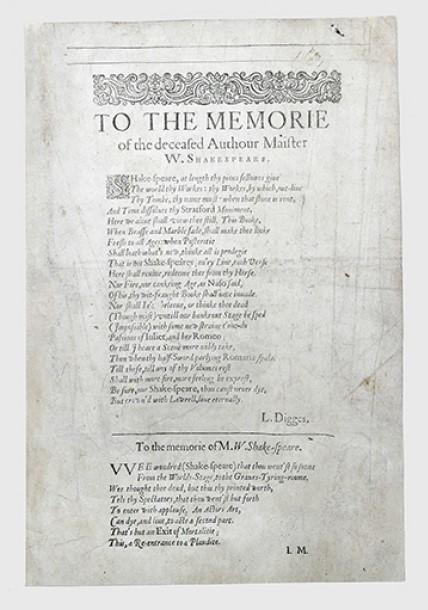 TO THE MEMORIE
of the deceased Authour Maister
W. SHAKESPEARE.
SHake-speare, at length thy pious fellowes giue
The world thy Workes: thy Workes, by which, out-liue
Thy Tombe, thy name must: when that stone is rent,
And Time dissolues thy Stratford Moniment,
Here we aliue shall view thee still. This Booke,
When Brasse and Marble fade, shall make thee looke
Fresh to all Ages: when Posteritie
Shall loath what's new, thinke all is prodegie
That is not Shake-speares; eu'ry Line, each Verse
Here shall reuiue, redeeme thee from thy Herse.
Nor Fire, nor cankring Age, as Naso said,
Of his, thy wit-fraught Booke shall once inuade.
Nor shall I e're beleeue, or thinke thee dead
(Though mist) vntill our bankrout Stage be sped
(Impossible) with some new straine t'out-do
Passions of Iuliet, and her Romeo;
Or till I heare a Scene more nobly take,
Then when thy half-Sword parlying Romans spake.
Till these, till any of thy Volumes rest
Shall with more fire, more feeling be exprest,
Be sure, our Shake-speare, thou canst neuer dye,
But crown'd with Lawrell, liue eternally.
L. Digges.
To the memorie of M. W. Shake-speare.
VVEE wondred (Shake-speare) that thou went'st so soone
From the Worlds-Stage, to the Graues-Tyring-roome.
Wee thought thee dead, but this thy printed worth,
Tels thy Spectators, that thou went'st but forth
To enter with applause. An Actors Art,
Can dye, and liue, to acte a second part.
That's but an Exit of Mortalitie;
This, a Re-entrance to a Plaudite.
I. M.